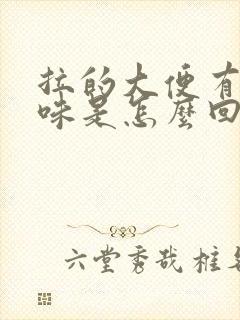 拉的大便有
味是怎麼回
六堂秀哉框